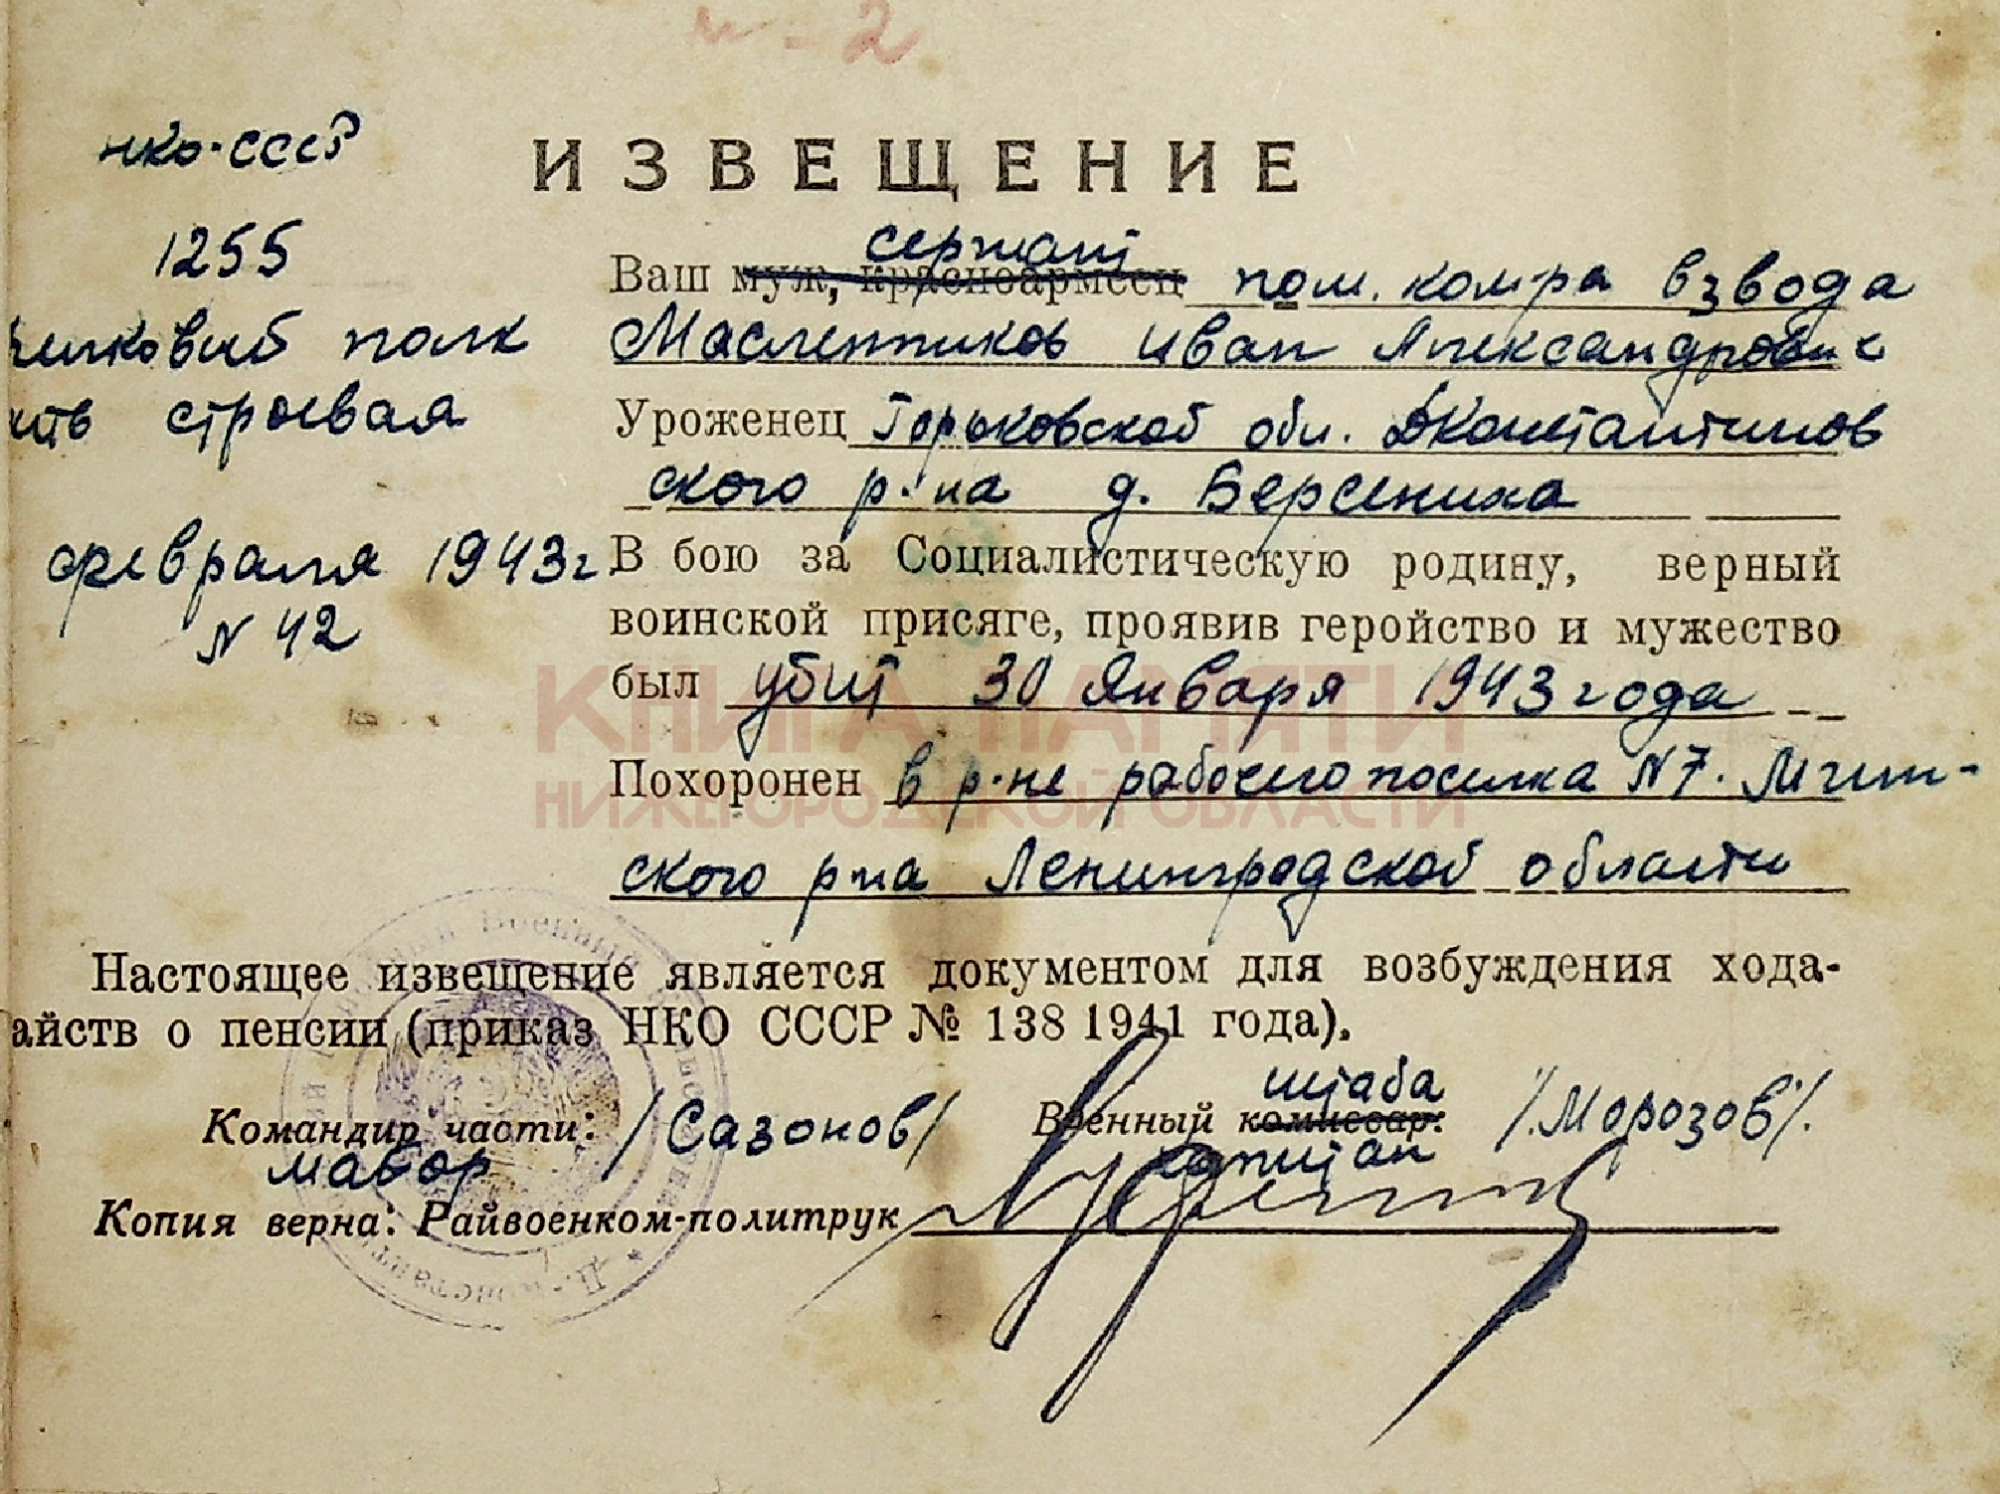 НКО-СССР
1255
релковый полк
сть строевая
февраля 1943г
N 42
ИЗВЕЩЕНИЕ
сержант
Ваш муж, красноармеец пом. ком-ра взвода
Масленников Иван Александрович
Уроженец Горьковской обл. Д Константинов
ского р-на д. Берсениха
В бою за Социалистическую родину, верный
воинской присяге, проявив геройство и мужество
был убит 30 Января 1943 года
КНИГА ПАМЯТИ
НИЖЕГОРОДСКОЙ ОБЛАСТИ
Похоронен в р-не рабочего поселка N7. Мгин-
ского р-на Ленинградской области
Настоящее извещение является документом для возбуждения хода-
айств о пенсии (приказ НКО СССР № 138 1941 года).
штаба
Командир части: /Сазонов/ Военный комиссар: /.Морозов/.
майор капитан
Копия верна: Райвоенком-политрук